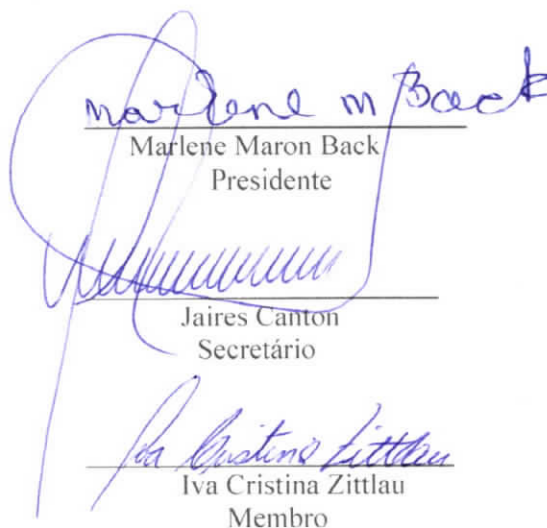 Marlene M Back
Marlene Maron Back
Presidente
Jaires Canton
Secretário
Iva Cristina Zittlau
Iva Cristina Zittlau
Membro